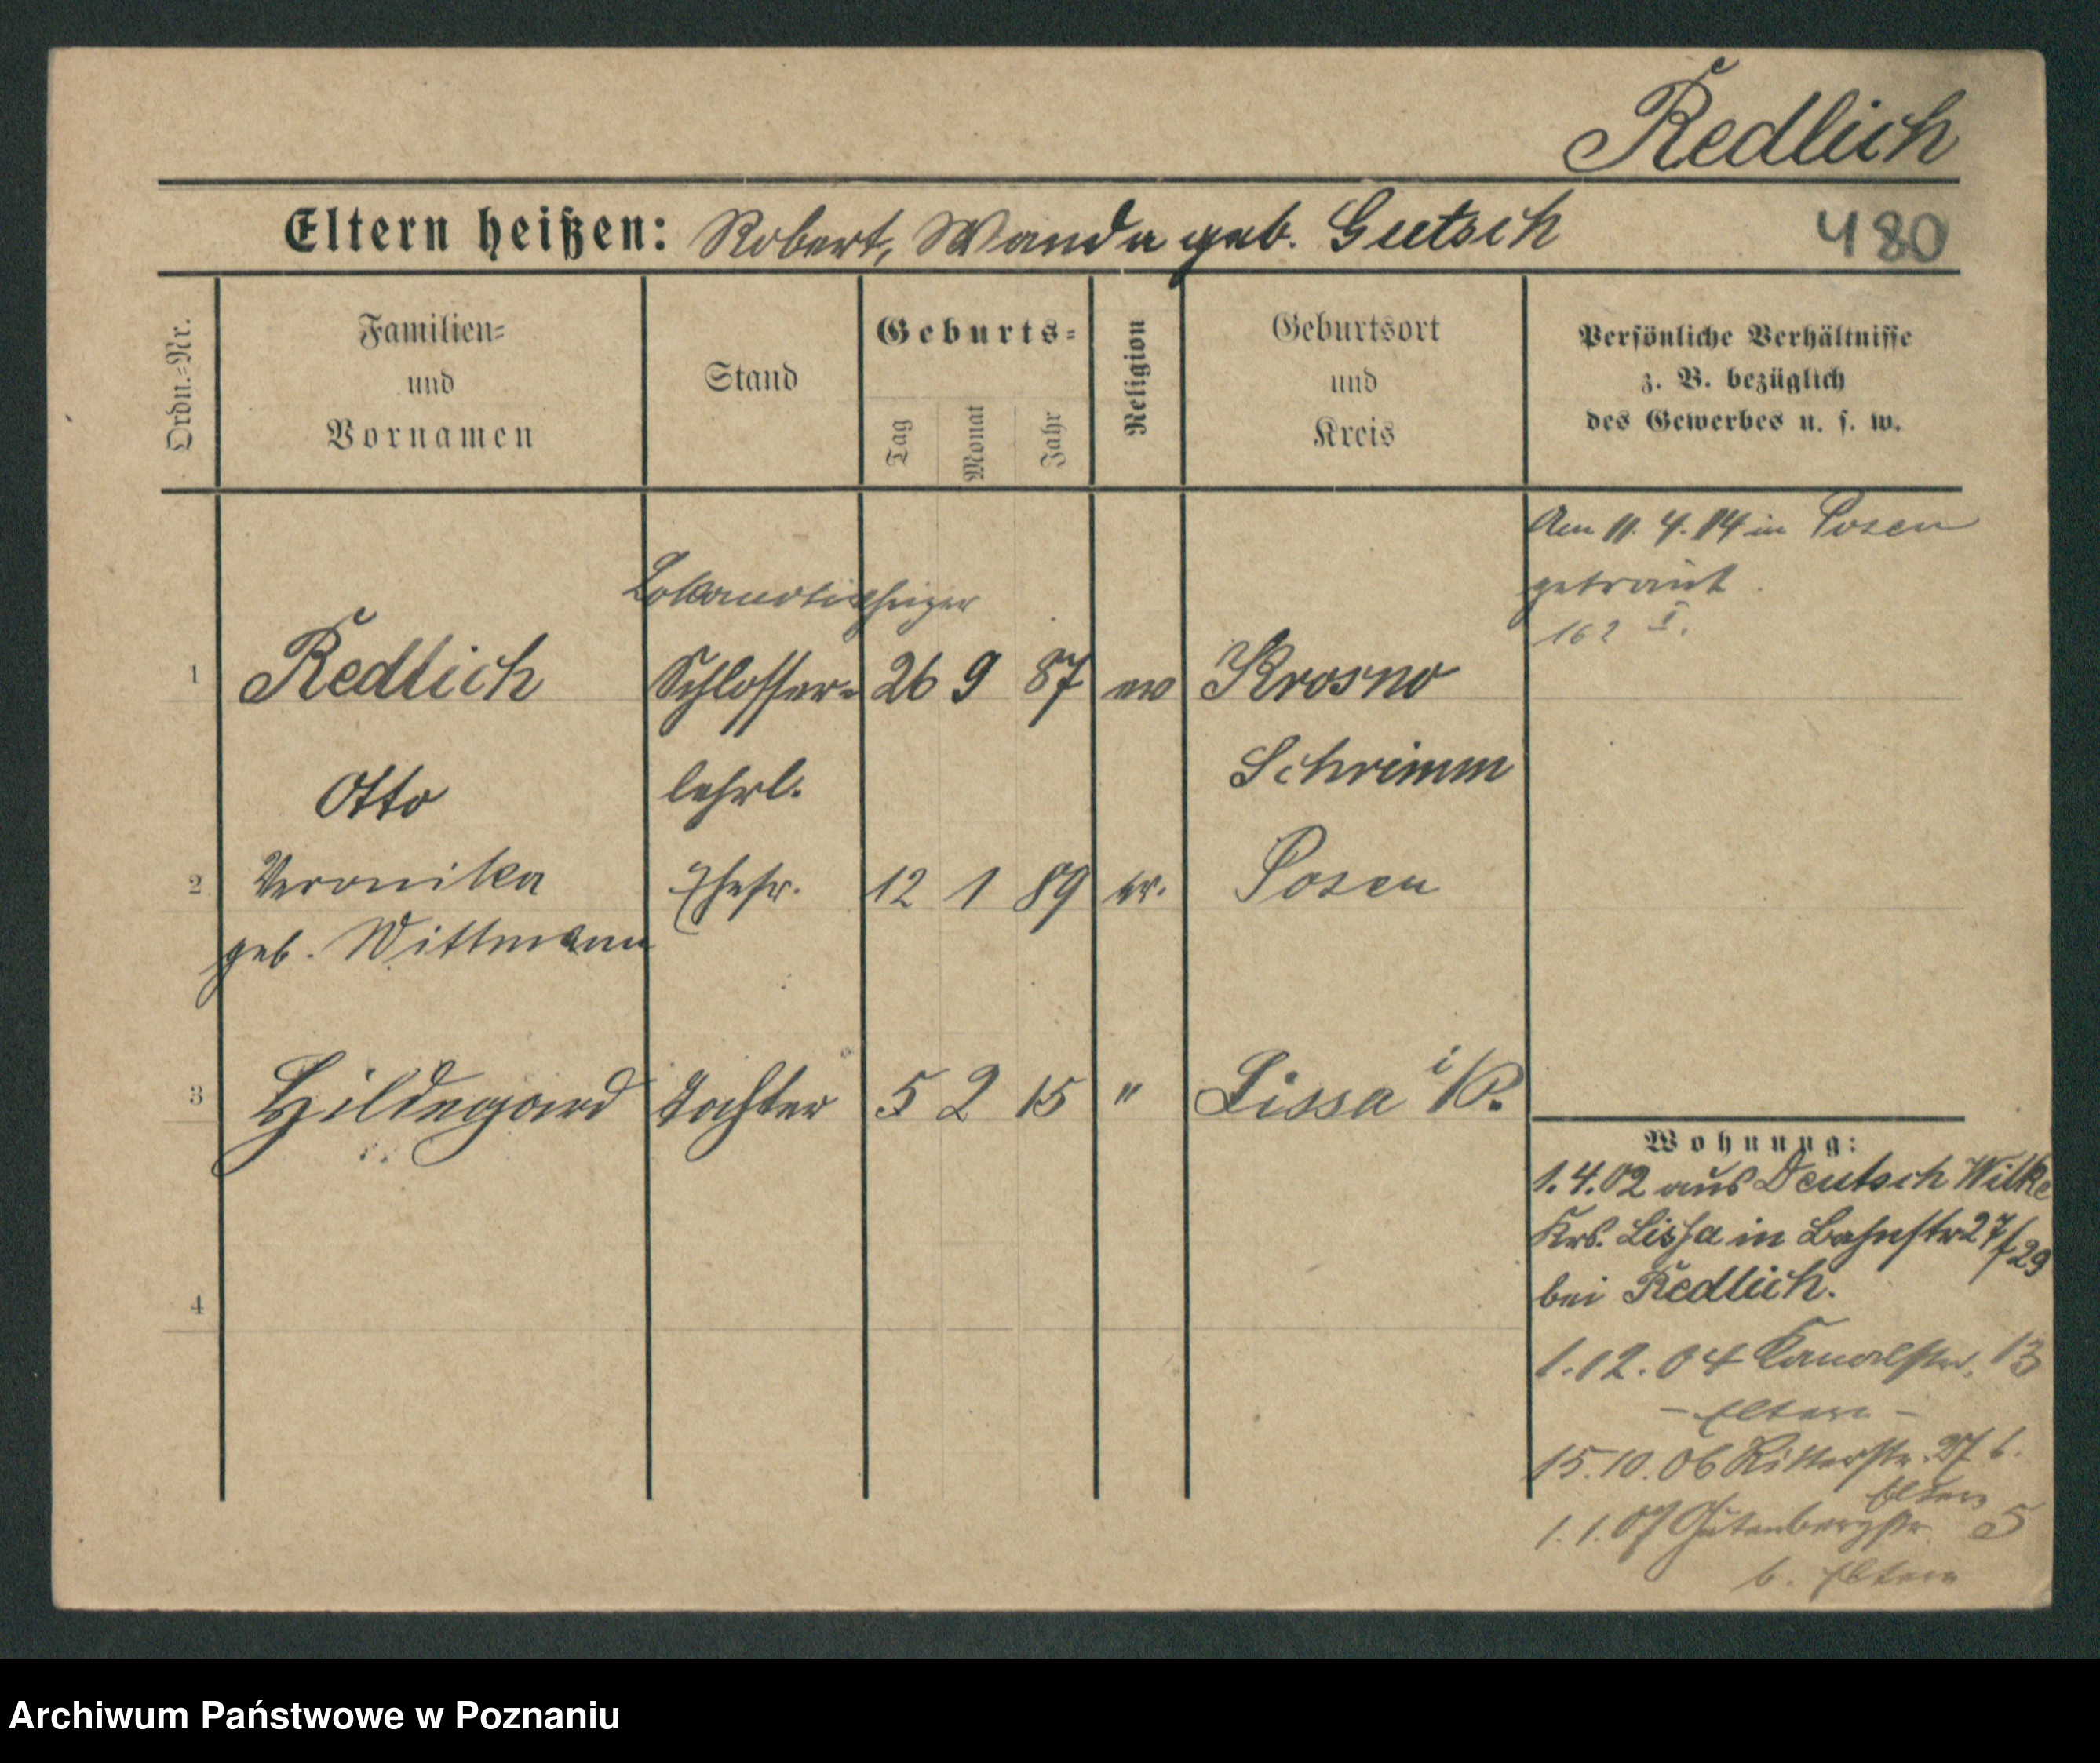 Redlich
Eltern heißen: Robert, Wanda geb. Gutsch
480
Ordn.=Nr.
Familien=
und
Vornamen
Stand
Geburts=
Tag
Monat
Jahr
Religion
Geburtsort
und
Kreis
Persönliche Verhältnisse
z. B. bezüglich
des Gewerbes u. s. w.
Am 11. 4. 14 in Posen
getraut.
162 I.
Lokomotivheizer
1 Redlich Schlosser= 26 9 87 ev Krosno
Otto lehrl. Schrimm
2 Veronika Ehefr. 12 1 89 ev. Posen
geb. Wittmann
3 Hildegard Tochter 5 2 15 " Lissa i/P.
4
Wohnung:
1. 4. 02 aus Deutsch Wilke
Krs. Lissa in Bahnstr 27/29
bei Redlich.
1. 12. 04 Kanalstr. 13
- Eltern -
15. 10. 06 Ritterstr. 27 b.
Eltern
1. 1. 07 Gutenbergstr. 5
b. Eltern
Archiwum Państwowe w Poznaniu